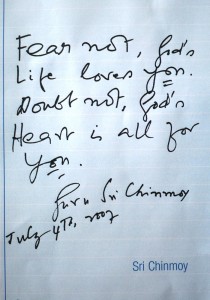 Fear not, God's
Life loves you.
Doubt not, God's
Heart is all for
you.
Guru Sri Chinmoy
July 4th, 2007
Sri Chinmoy